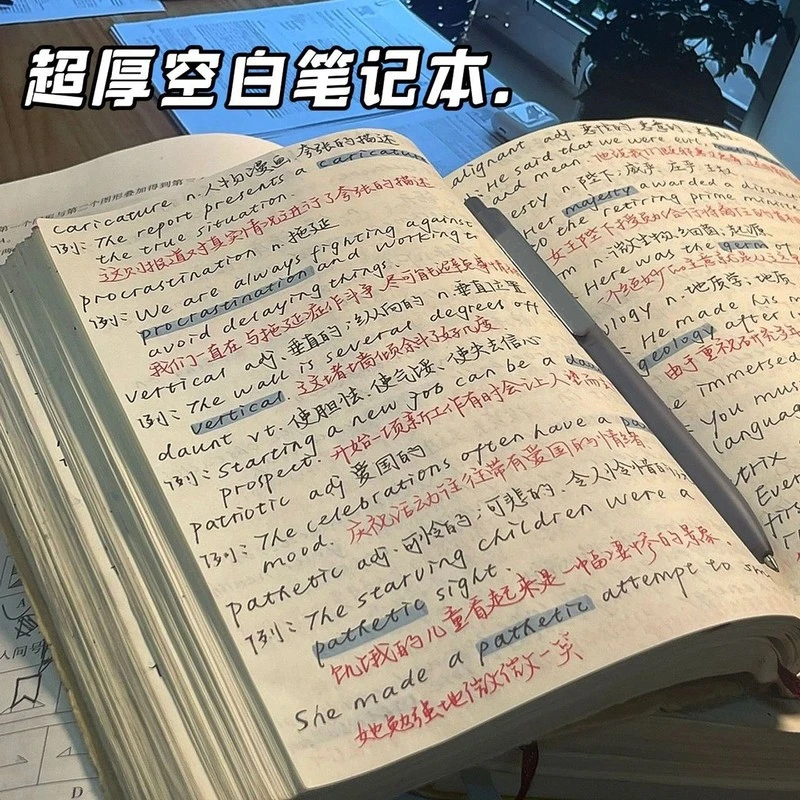 超厚空白笔记本.
caricature n.人物漫画 夸张的描述
例: The report presents a caricature
the true situation.
这则报道对真实情况进行了夸张的描述
procrastination n. 拖延
例: We are always fighting against
procrastination and working to
avoid delaying things.
我们一直在与拖延症作斗争 尽可能
vertical adj. 垂直的; 纵向的 n. 垂直位置
例: The wall is several degrees off
vertical. 这堵墙倾斜了好几度
daunt vt. 使胆怯, 使气馁, 使失去信心
例: Starting a new job can be a
prospect. 开始一项新工作有时会让人
patriotic adj 爱国的
例: The celebrations often have a
mood. 庆祝活动往往带有爱国的情绪
pathetic adj. 可怜的; 可悲的, 令人怜惜的
例: The starving children were a
pathetic sight.
饥饿的儿童看起来是一幅凄惨的景象.
She made a pathetic attempt to
她勉强地微微一笑
malignant adj.
He said that we were evil
and mean.
majesty n. 陛下, 威严, 庄严
Her majesty awarded a
to the retiring prime
n. 微生物, 细菌; 起源
Here was the germ of
geology n. 地质学; 地质
He made his
geology after
由于重视
immersed
You must
language
Ever
第一个图形与第二个图形叠加得到第
D